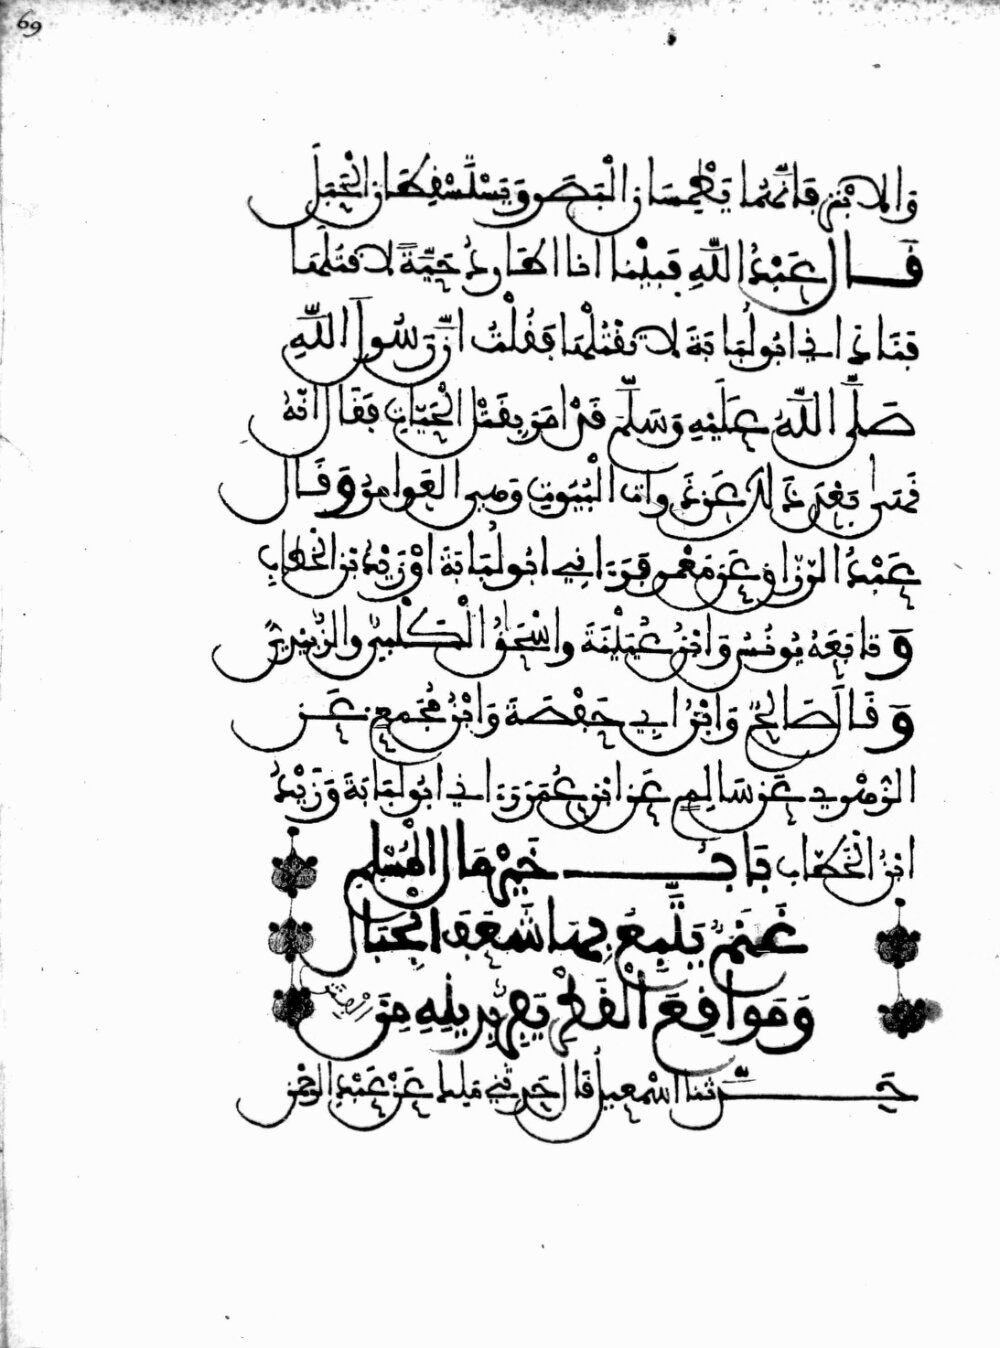 69
وَالابْتَرَ فَإِنَّهُمَا يَطْمِسَانِ الْبَصَرَ وَيَسْتَسْقِطَانِ الْحَبَلَ
قَالَ عَبْدُ اللَّهِ فَبَيْنَا أَنَا أُطَارِدُ حَيَّةً لِأَقْتُلَهَا
فَنَادَانِي أَبُو لُبَابَةَ لَا تَقْتُلْهَا فَقُلْتُ إِنَّ رَسُولَ اللَّهِ
صَلَّى اللَّهُ عَلَيْهِ وَسَلَّمَ قَدْ أَمَرَ بِقَتْلِ الْحَيَّاتِ فَقَالَ إِنَّهُ
نَهَى بَعْدَ ذَلِكَ عَنْ ذَوَاتِ الْبُيُوتِ وَهِيَ الْعَوَامِرُ وَقَالَ
عَبْدُ الرَّزَّاقِ عَنْ مَعْمَرٍ فَرَءَانِي أَبُو لُبَابَةَ أَوْ زَيْدُ بْنُ الْخَطَّابِ
وَتَابَعَهُ يُونُسُ وَابْنُ عُيَيْنَةَ وَإِسْحَاقُ الْكَلْبِيُّ وَالزُّبَيْدِيُّ
وَقَالَ صَالِحٌ وَابْنُ أَبِي حَفْصَةَ وَابْنُ مُجَمِّعٍ عَنِ
الزُّهْرِيِّ عَنْ سَالِمٍ عَنِ ابْنِ عُمَرَ رَءَانِي أَبُو لُبَابَةَ وَزَيْدُ
ابْنُ الْخَطَّابِ بَابُ خَيْرُ مَالِ الْمُسْلِمِ
غَنَمٌ يَتَّبِعُ بِهَا شَعَفَ الْجِبَالِ
وَمَوَاقِعَ الْقَطْرِ يَفِرُّ بِدِينِهِ مِنَ الْفِتَنِ
حَدَّثَنَا إِسْمَعِيلُ قَالَ حَدَّثَنِي مَلِكٌ عَنْ عَبْدِ الرَّحْمَنِ